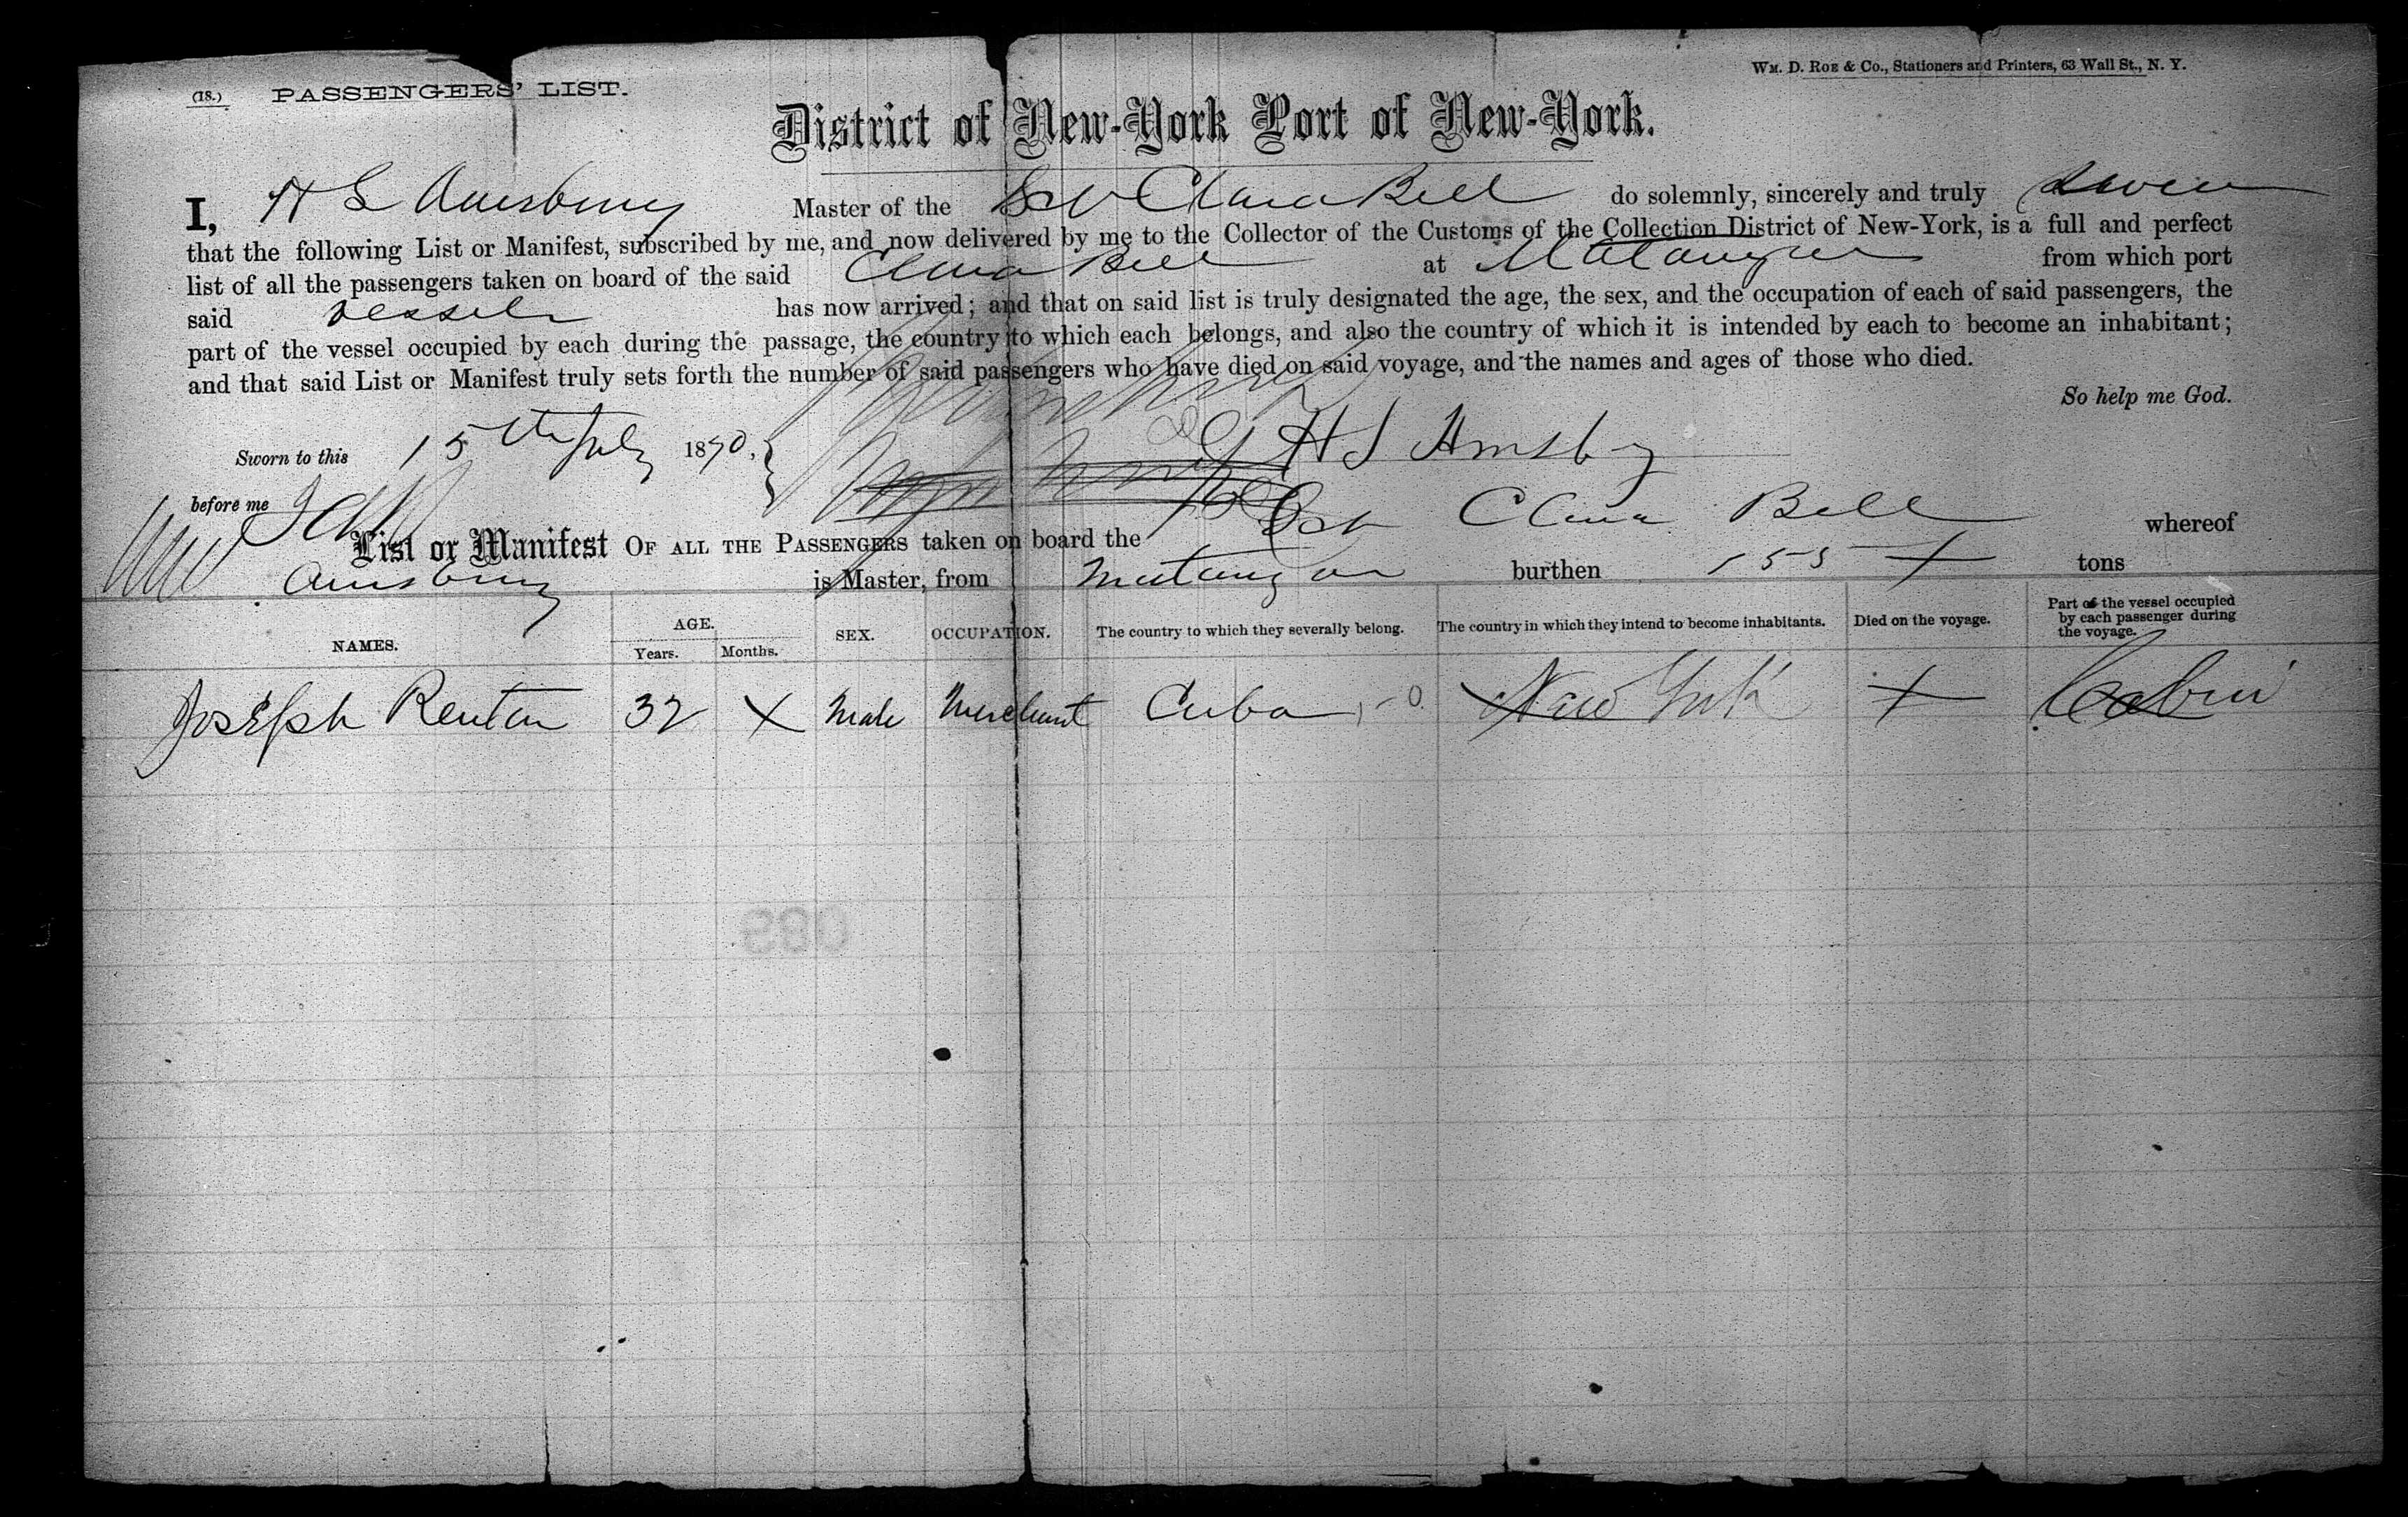 (18.) PASSENGERS' LIST.
Wm. D. Roe & Co., Stationers and Printers, 63 Wall St., N. Y.
District of New-York Port of New-York.
I, H S Amesbury Master of the Sch Clara Bell do solemnly, sincerely and truly swear
that the following List or Manifest, subscribed by me, and now delivered by me to the Collector of the Customs of the Collection District of New-York, is a full and perfect
list of all the passengers taken on board of the said Clara Bell at Matanzas from which port
said Vessel has now arrived; and that on said list is truly designated the age, the sex, and the occupation of each of said passengers, the
part of the vessel occupied by each during the passage, the country to which each belongs, and also the country of which it is intended by each to become an inhabitant;
and that said List or Manifest truly sets forth the number of said passengers who have died on said voyage, and the names and ages of those who died.
So help me God.
Sworn to this 15th July 1870,
H S Amsby
before me
List or Manifest OF ALL THE PASSENGERS taken on board the Sch Clara Bell whereof
Amsbury is Master, from Matanzas burthen 155 tons
NAMES. AGE. Years. Months. SEX. OCCUPATION. The country to which they severally belong. The country in which they intend to become inhabitants. Died on the voyage. Part of the vessel occupied by each passenger during the voyage.
Joseph Renten 32 X Male Merchant Cuba New York X Cabin